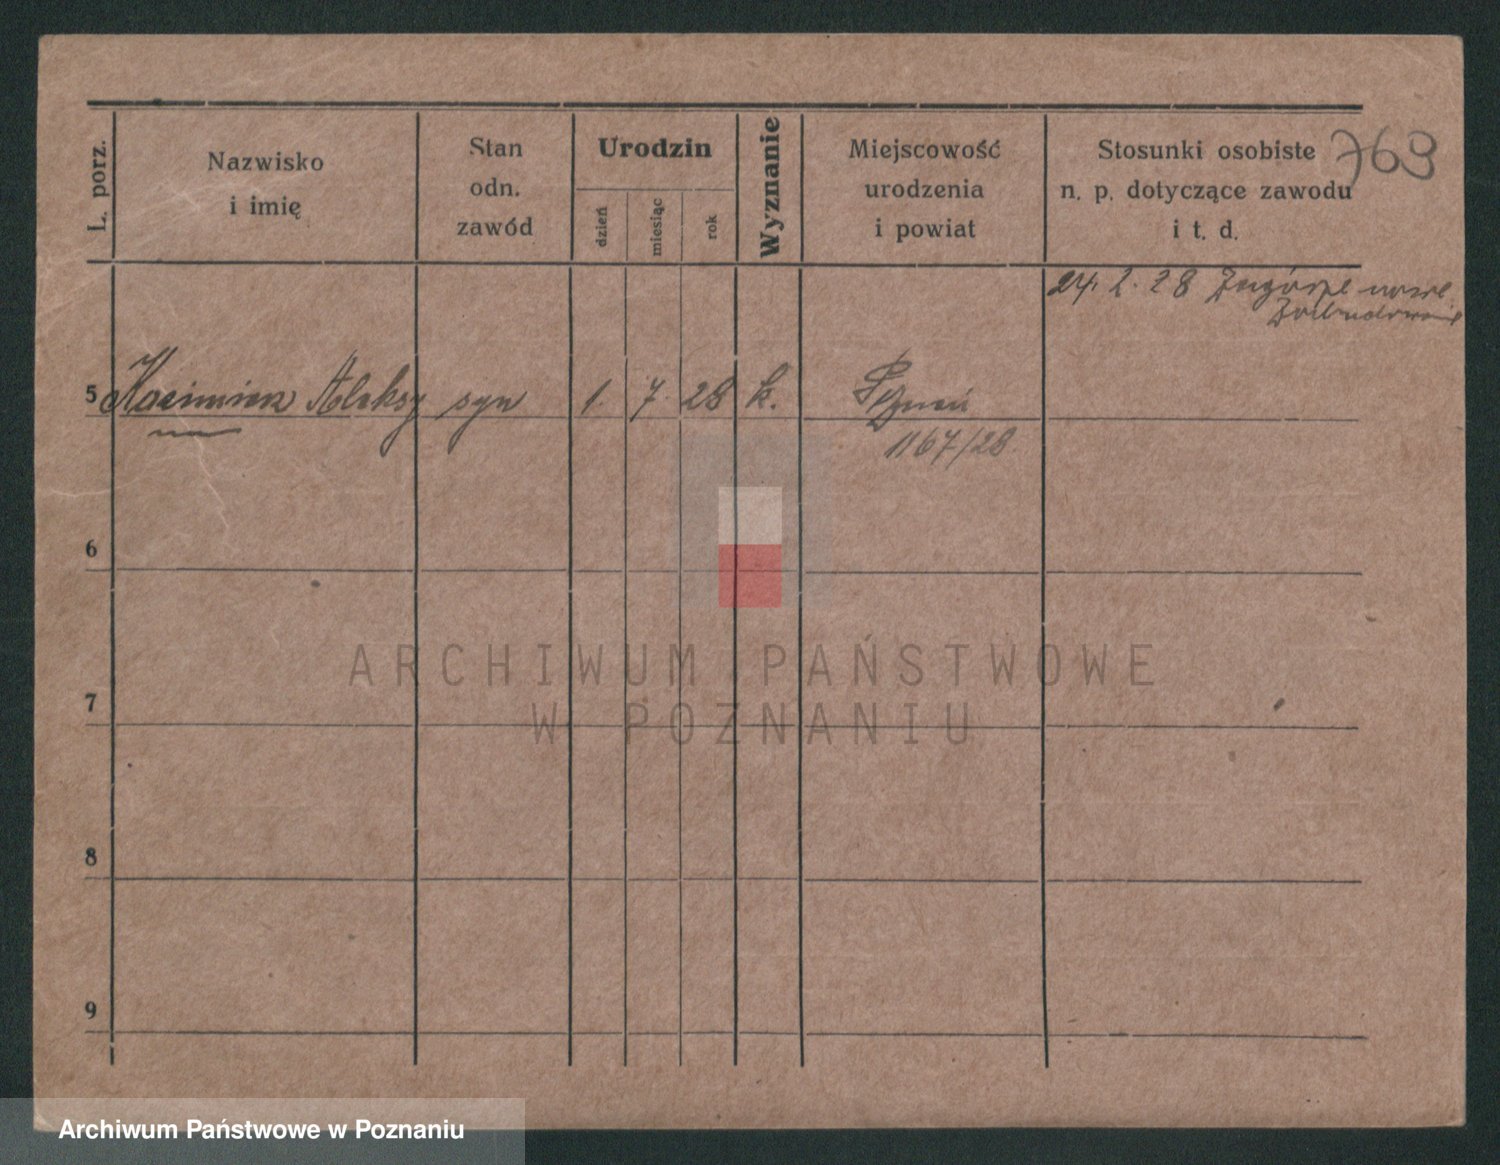 L. porz.
Nazwisko
i imię
Stan
odn.
zawód
Urodzin
dzień
miesiąc
rok
Wyznanie
Miejscowość
urodzenia
i powiat
Stosunki osobiste
n. p. dotyczące zawodu
i t. d.
769
24. 2. 28
5 Kazimierz Aleksy syn 1. 7. 28 k. Poznań
1167/28.
6
7
8
9
ARCHIWUM PAŃSTWOWE
W POZNANIU
Archiwum Państwowe w Poznaniu